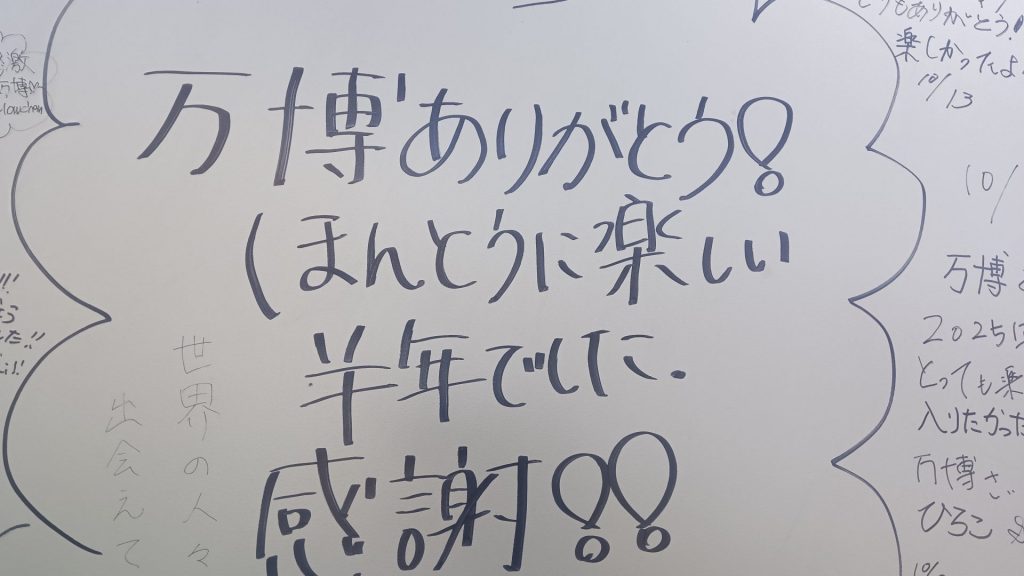 万博ありがとう!
(ほんとうに楽しい
半年でした.
感謝!!
世界の人々
出会えて
ありがとう!
楽しかったよ
10/13
10/
万博
2025
とっても楽
入りたかった
万博さ
ひろこ
激
万博